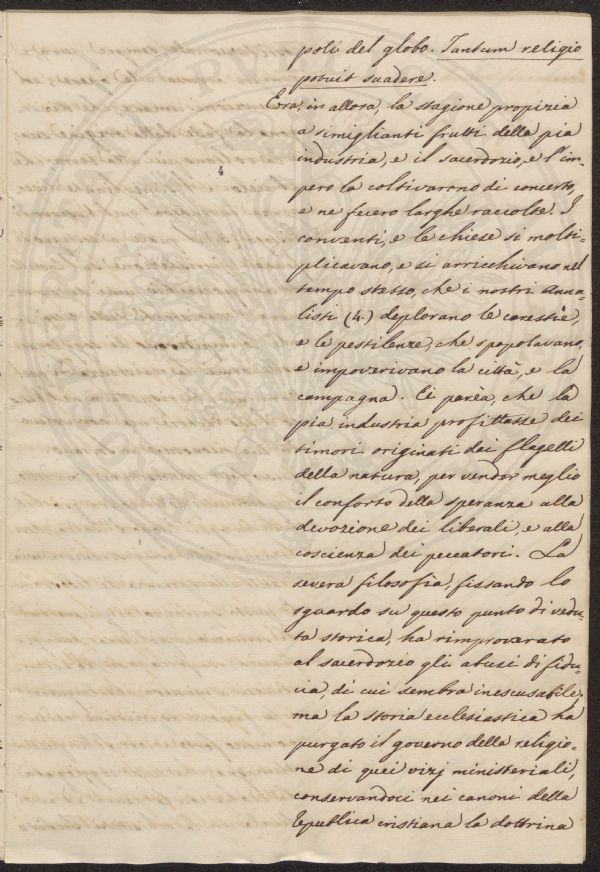 poli del globo. Tantum religio
potuit suadere.
Era, in allora, la stagione propizia
a simiglianti frutti della pia
industria, e il sacerdozio, e l'im=
pero la coltivarono di concerto,
e ne fecero larghe raccolte. I
conventi, e le chiese si molti=
plicavano, e si arricchivano nel
tempo stesso, che i nostri anna=
listi (4.) deplorano le carestie,
e le pestilenze, che spopolavano,
e impoverivano la città, e la
campagna. Ei parèa, che la
pia industria profittasse dei
timori originati dai flagelli
della natura, per vender meglio
il conforto della speranza alla
devozione dei liberali, e alla
coscienza dei peccatori. La
severa filosofia, fissando lo
sguardo su questo punto di vedu=
ta storica, ha rimproverato
al sacerdozio gli abusi di fidu=
cia, di cui sembra inescusabile:
ma la storia ecclesiastica ha
purgato il governo della religio=
ne di quei vizj ministeriali,
conservandoci nei canoni della
Repubblica cristiana la dottrina
4